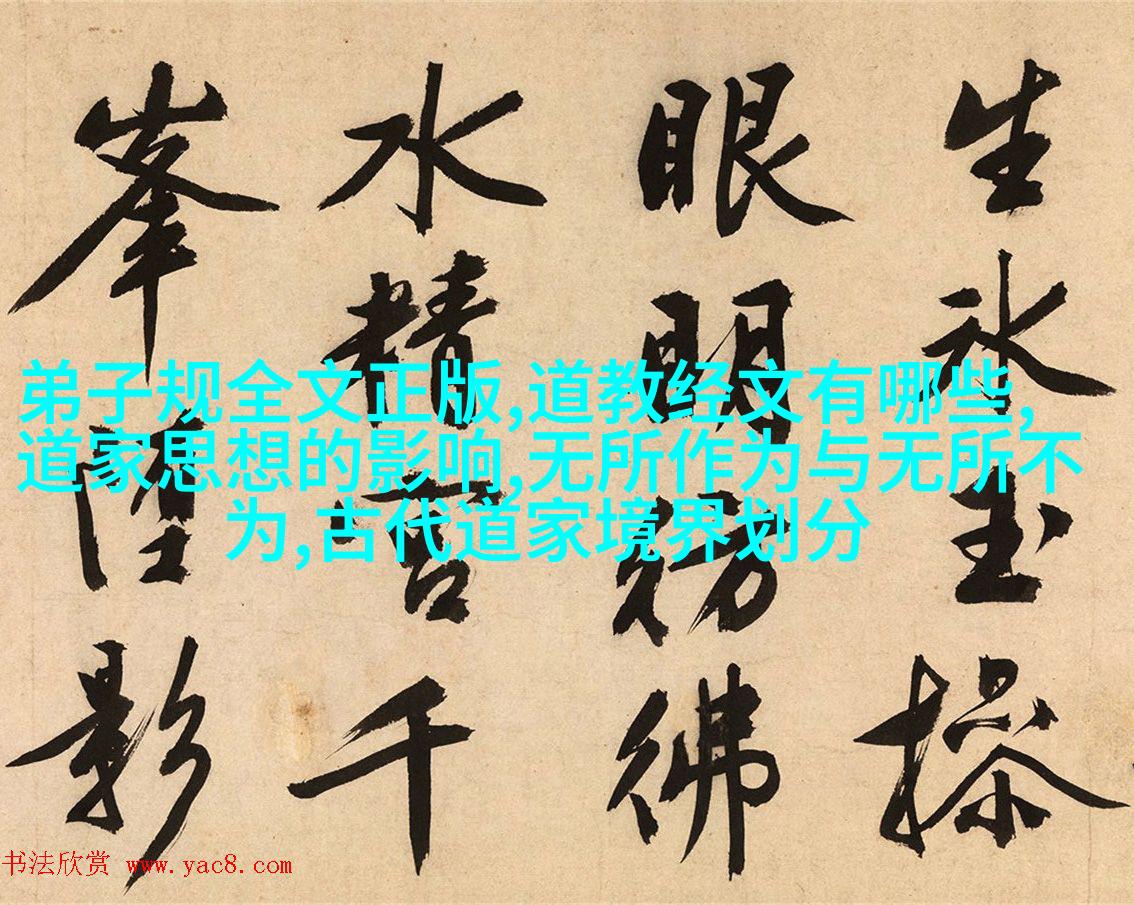 生冰玉操
眼明彷彿
水精宮千
峯墮影
弟子规全文正版,道教经文有哪些,
道家思想的影响,无所作为与无所不
为,古代道家境界划分
书法欣赏 www.yac8.com